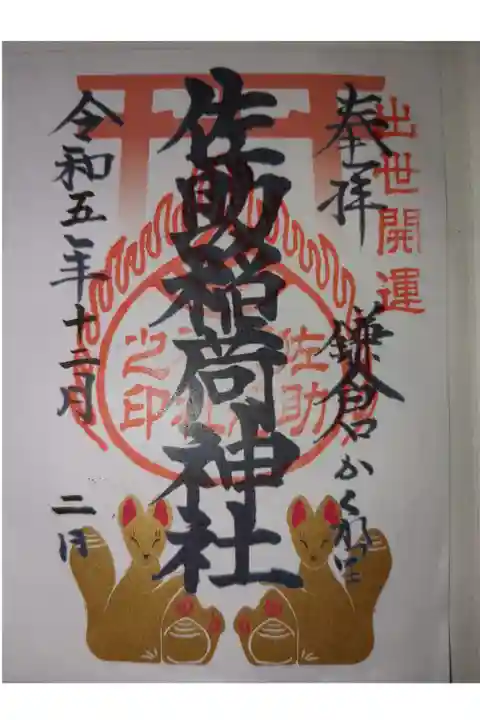 出世開運
奉拝
鎌倉かくれ里
佐助稲荷神社
佐助
之印
令和五年十二月二日